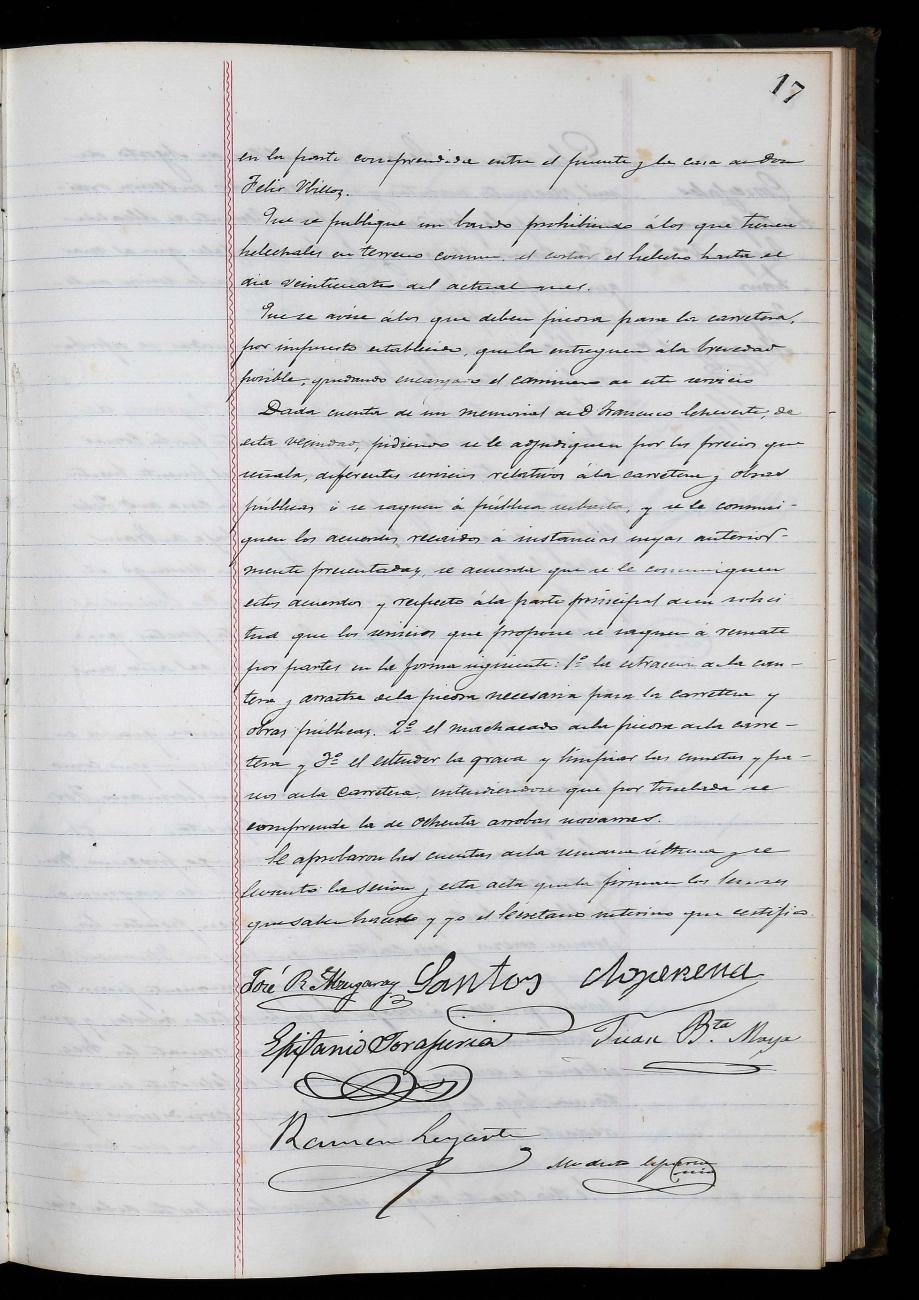 17
en la parte comprendida entre el puente y la casa de Don
Felix Ubillos.
Que se publique un bando prohibiendo á los que tienen
helechales en terreno comun, el cortar el helecho hasta el
dia veinticuatro del actual mes.
Que se avise á los que deben piedra para la carretera,
por impuesto establecido, que la entreguen á la brevedad
posible, quedando encargado el caminero de este servicio
Dada cuenta de un memorial de D. Francisco Echeverte, de
esta vecindad, pidiendo se le adjudiquen por los precios que
señala, diferentes servicios relativos á la carretera y obras
públicas ó se saquen á pública subasta, y se le comuni-
quen los acuerdos recaidos á instancias suyas anterior-
mente presentadas, se acuerda que se le comuniquen
estos acuerdos y respecto á la parte principal de su solici
tud que los servicios que propone se saquen á remate
por partes en la forma siguiente: 1º la estraccion de la can-
tera y arrastre de la piedra necesaria para la carretera y
obras públicas. 2º el machacado de la piedra de la carre-
tera y 3º el estender la grava y limpiar las cunetas y pa-
seos de la carretera, entendiendose que por tonelada se
comprende la de ochenta arrobas navarras.
Se aprobaron las cuentas de la semana ultima y se
levantó la sesion y esta acta que la firman los Señores
que saben hacerlo y yo el Secretario interino que certifico.
José R. Santos
Epifanio Juan Bta. Maya
Ramon
Modesto